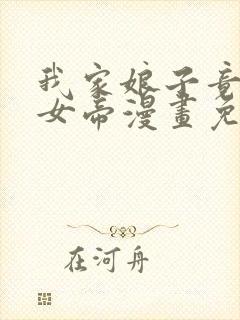 我家娘子竟
女帝漫畫免
在河舟